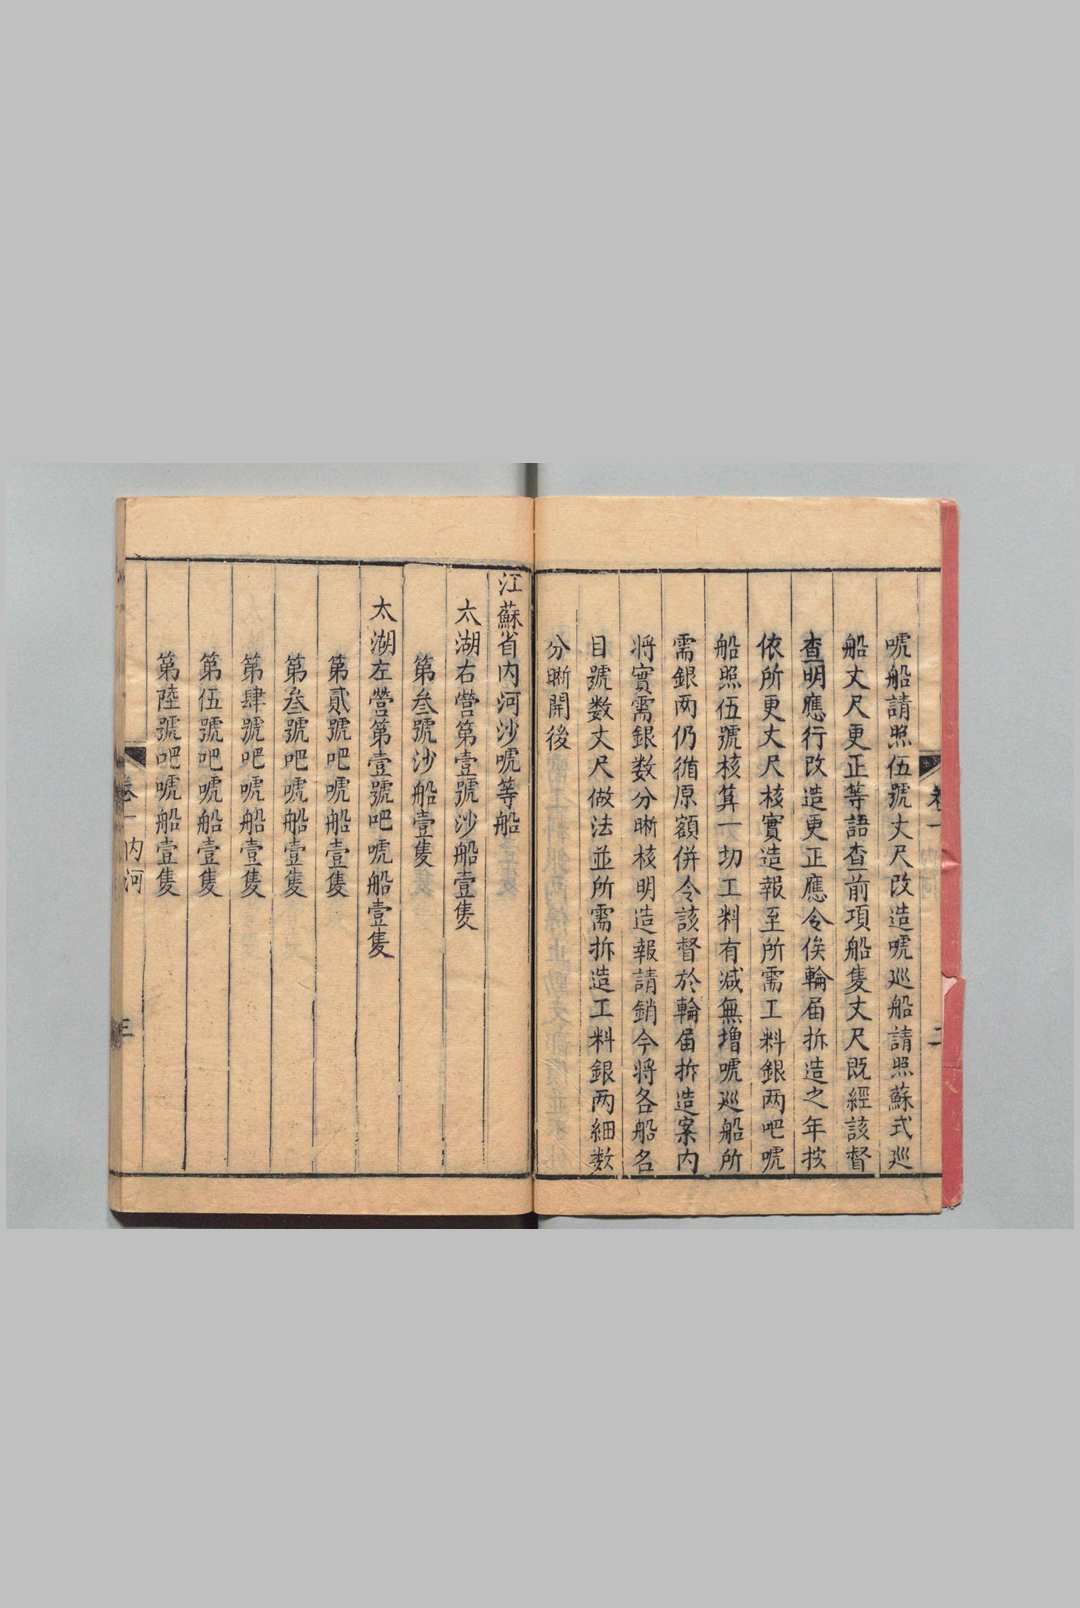 唬船請照伍號丈尺改造唬巡船請照蘇式巡
船丈尺更正等語查前項船隻丈尺既經該督
查明應行改造更正應令俟輪届拆造之年按
依所更丈尺核實造報至所需工料銀两吧唬
船照伍號核算一切工料有减無增唬巡船所
需銀两仍循原額併令該督於輪届拆造案内
将實需銀数分晰核明造報請銷今将各船名
目號数丈尺做法並所需拆造工料銀两細数
分晰開後
二
江蘇省内河沙唬等船
太湖右營第壹號沙船壹隻
第叁號沙船壹隻
太湖左營第壹號吧唬船壹隻
第貳號吧唬船壹隻
第叁號吧唬船壹隻
第肆號吧唬船壹隻
第伍號吧唬船壹隻
第陸號吧唬船壹隻
卷一 内河
三